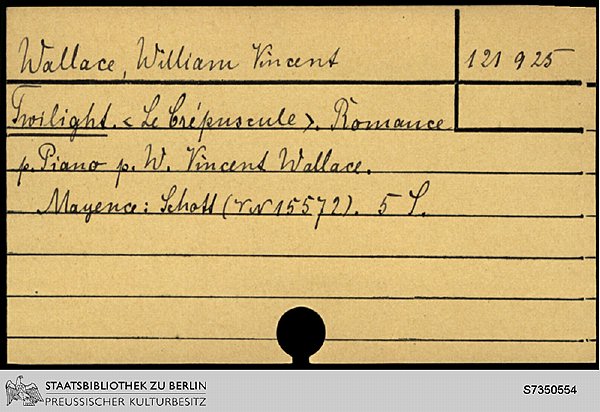 Wallace, William Vincent
121 925
Twilight. < Le Crépuscule >. Romance
p. Piano p. W. Vincent Wallace.
Mayence: Schott (VN 15572). 5 S.
STAATSBIBLIOTHEK ZU BERLIN
PREUSSISCHER KULTURBESITZ
S7350554